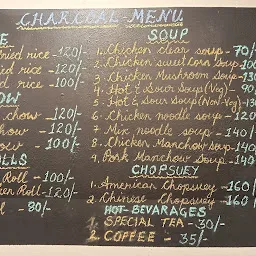 CHARCOAL MENU
E
ried rice - 120/-
d rice - 120/-
d rice - 100/-
OW
chow - 120/-
how - 120/-
how - 100/-
LLS
Roll - 100/-
en Roll - 120/-
l - 80/-
SOUP
1. Chicken clear soup - 70/
2. Chicken sweet corn Soup - 100
3. Chicken Mushroom Soup - 130
4. Hot & Sour Soup (Veg) - 90
5. Hot & Sour Soup (Non-Veg) - 130
6. Chicken noodle soup - 120
7. Mix noodle soup - 140/
8. Chicken Manchow Soup - 140
9. Pork Manchow Soup - 140/
CHOPSUEY
1. American Chopsuey - 160/
2. Chinese Chopsuey - 160/
HOT BEVARAGES
1. SPECIAL TEA - 30/-
2. COFFEE - 35/-